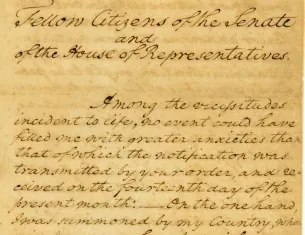 Fellow Citizens of the Senate
and
of the House of Representatives.
Among the vicissitudes
incident to life, no event could have
filled me with greater anxieties than
that of which the notification was
transmitted by your order, and re=
ceived on the fourteenth day of the
present month: On the one hand,
I was summoned by my Country, whose